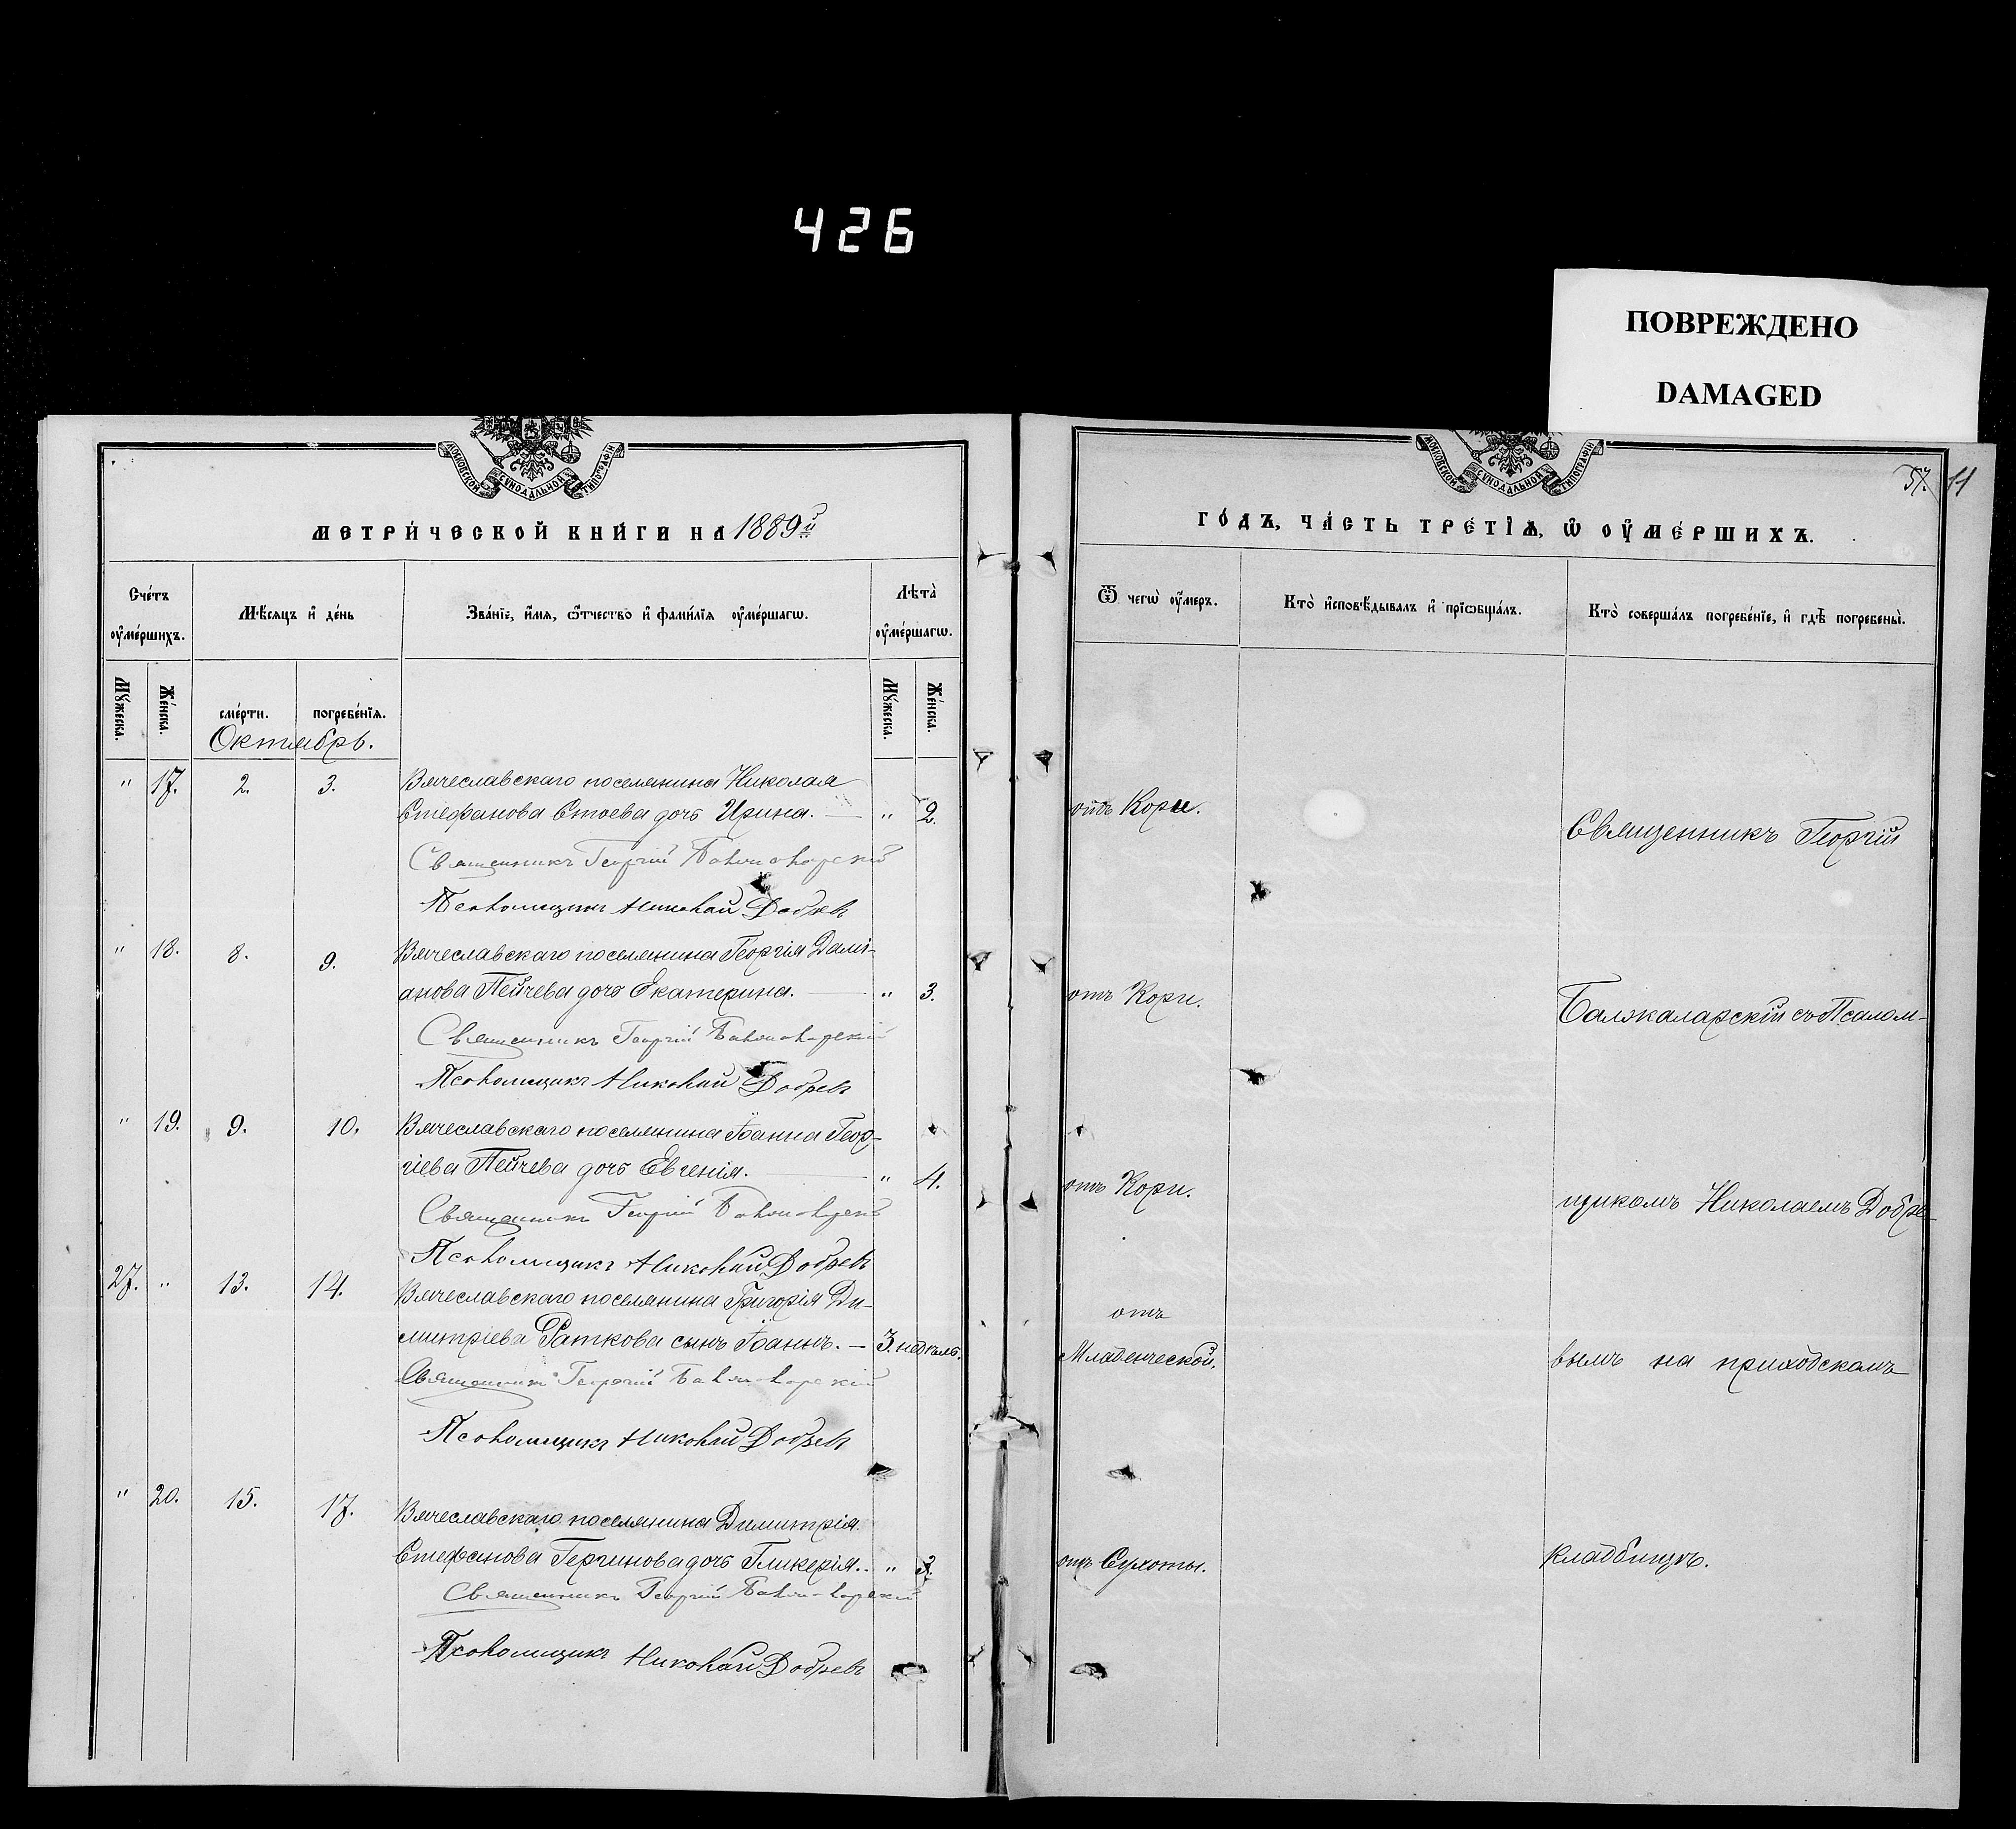 426
ПОВРЕЖДЕНО
DAMAGED
МОСКОВСКОЙ СУНОДАЛЬНОЙ ТИПОГРАФІИ
МЕТРИ́ЧЕСКОЙ КНИ́ГИ НА 1889й
Сче́тъ ᲂу҆ме́ршихъ.
Мѣ́сяцъ и҆ де́нь
Зва́нїе, и҆́мя, ѻ҆́тчество и҆ фами́лїя ᲂу҆ме́ршагѡ.
Лѣта̀ ᲂу҆ме́ршагѡ.
Мꙋ́жеска.
Же́нска.
сме́рти.
погребе́нїѧ.
Мꙋ́жеска.
Же́нска.
Октябрь.
" 17. 2. 3. Вячеславскаго поселянина Николая
Стефанова Стоева дочь Ирина. — " 2.
Священникъ Георгій Балжаларскій
Псаломщикъ Николай Добревъ
" 18. 8. 9. Вячеславскаго поселянина Георгія Дамі-
анова Пейчева дочь Екатерина. — " 3.
Священникъ Георгій Балжаларскій
Псаломщикъ Николай Добревъ
" 19. 9. 10. Вячеславскаго поселянина Іоанна Геор-
гіева Пейчева дочь Евгенія. — " 4.
Священникъ Георгій Балжаларскій
Псаломщикъ Николай Добревъ
27. " 13. 14. Вячеславскаго поселянина Григорія Ди-
митріева Раткова сынъ Іоаннъ. — 3. недѣль.
Священникъ Георгій Балжаларскій
Псаломщикъ Николай Добревъ
" 20. 15. 17. Вячеславскаго поселянина Димитрія
Стефанова Гергинова дочь Гликерія. " 3.
Священникъ Георгій Балжаларскій
Псаломщикъ Николай Добревъ
57. 11
МОСКОВСКОЙ СУНОДАЛЬНОЙ ТИПОГРАФІИ
ГО́ДЪ, ЧА́СТЬ ТРЕ́ТЇѦ, Ѡ҆ ОУ҆МЕ́РШИХЪ.
Ѿ чегѡ̀ ᲂу҆́меръ.
Кто̀ и҆сповѣ́дывалъ и҆ прїѡбща́лъ.
Кто̀ соверша́лъ погребе́нїе, и҆ гдѣ̀ погребены̀.
отъ Кори.
Священникъ Георгій
отъ Кори.
Балжаларскій съ Псалом-
отъ Кори.
щикомъ Николаемъ Добре-
отъ
Младенческой.
вымъ на приходскомъ
отъ Сухоты.
кладбищѣ.